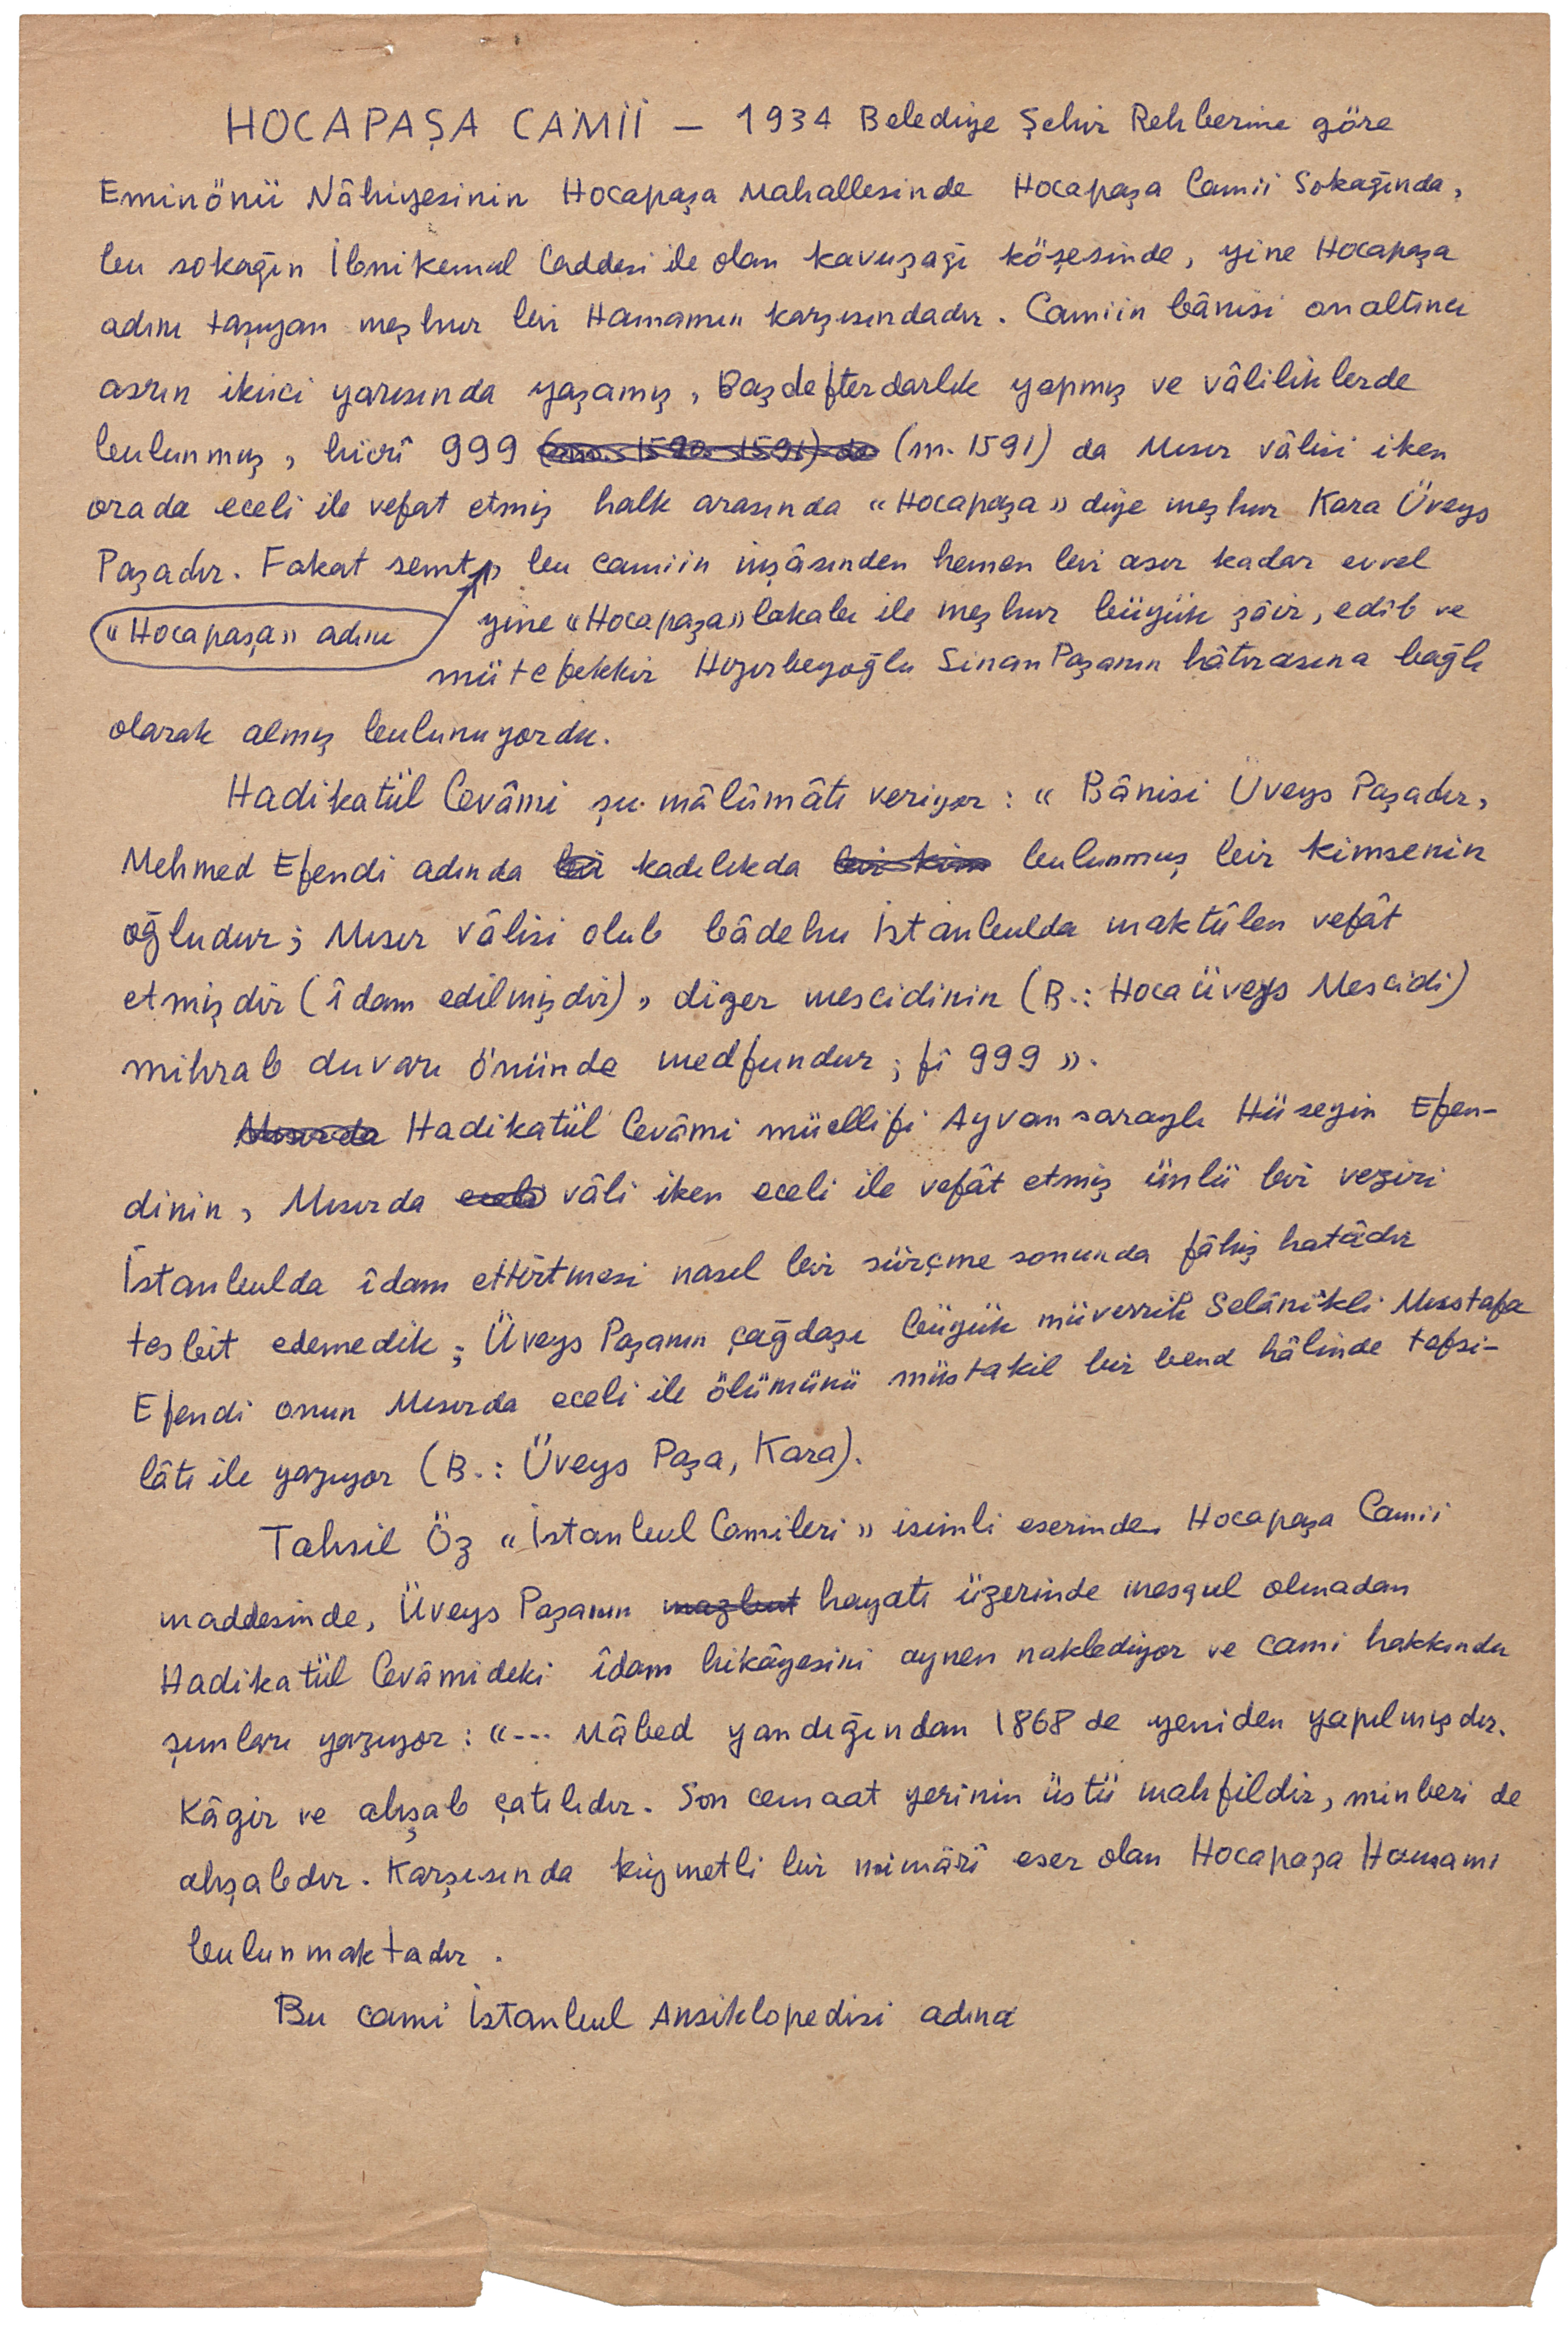 HOCAPAŞA CAMİİ — 1934 Belediye Şehir Rehberine göre
Eminönü Nâhiyesinin Hocapaşa Mahallesinde Hocapaşa Camii Sokağında,
bu sokağın İbnikemal Caddesi ile olan kavuşağı köşesinde, yine Hocapaşa
adını taşıyan meşhur bir Hamamın karşısındadır. Camiin bânisi onaltıncı
asrın ikinci yarısında yaşamış, Başdefterdarlık yapmış ve vâliliklerde
bulunmuş, hicrî 999 (m. 1590-1591) da (m. 1591) da Mısır vâlisi iken
orada eceli ile vefat etmiş halk arasında «Hocapaşa» diye meşhur Kara Üveys
Paşadır. Fakat semt, bu camiin inşâsından hemen bir asır kadar evvel
«Hocapaşa» adını yine «Hocapaşa» lakabı ile meşhur büyük şâir, edib ve
mütefekkir Hızırbeyoğlu Sinan Paşanın hâtırasına bağlı
olarak almış bulunuyordu.
Hadikatül Cevâmi şu mâlûmâtı veriyor: « Bânisi Üveys Paşadır,
Mehmed Efendi adında bir kadılıkda bir kim bulunmuş bir kimsenin
oğludur; Mısır vâlisi olub bâdehu İstanbulda maktûlen vefât
etmişdir (îdam edilmişdir), diğer mescidinin (B.: Hocaüveys Mescidi)
mihrab duvarı önünde medfundur; fî 999 ».
Mısırda Hadikatül Cevâmi müellifi Ayvansaraylı Hüseyin Efen-
dinin, Mısırda eceli vâli iken eceli ile vefât etmiş ünlü bir veziri
İstanbulda îdam ettirtmesi nasıl bir sürçme sonunda fâhiş hatâdır
tesbit edemedik; Üveys Paşanın çağdaşı büyük müverrih Selânikli Mustafa
Efendi onun Mısırda eceli ile ölümünü müstakil bir bend hâlinde tafsi-
lâtı ile yazıyor (B.: Üveys Paşa, Kara).
Tahsil Öz «İstanbul Camileri» isimli eserinden Hocapaşa Camii
maddesinde, Üveys Paşanın mazbut hayatı üzerinde meşgul olmadan
Hadikatül Cevâmideki îdam hikâyesini aynen naklediyor ve cami hakkında
şunları yazıyor: «... Mâbed yandığından 1868 de yeniden yapılmışdır.
Kâgir ve ahşab çatılıdır. Son cemaat yerinin üstü mahfildir, minberi de
ahşabdır. Karşısında kıymetli bir mimârî eser olan Hocapaşa Hamamı
bulunmaktadır.
Bu cami İstanbul Ansiklopedisi adına